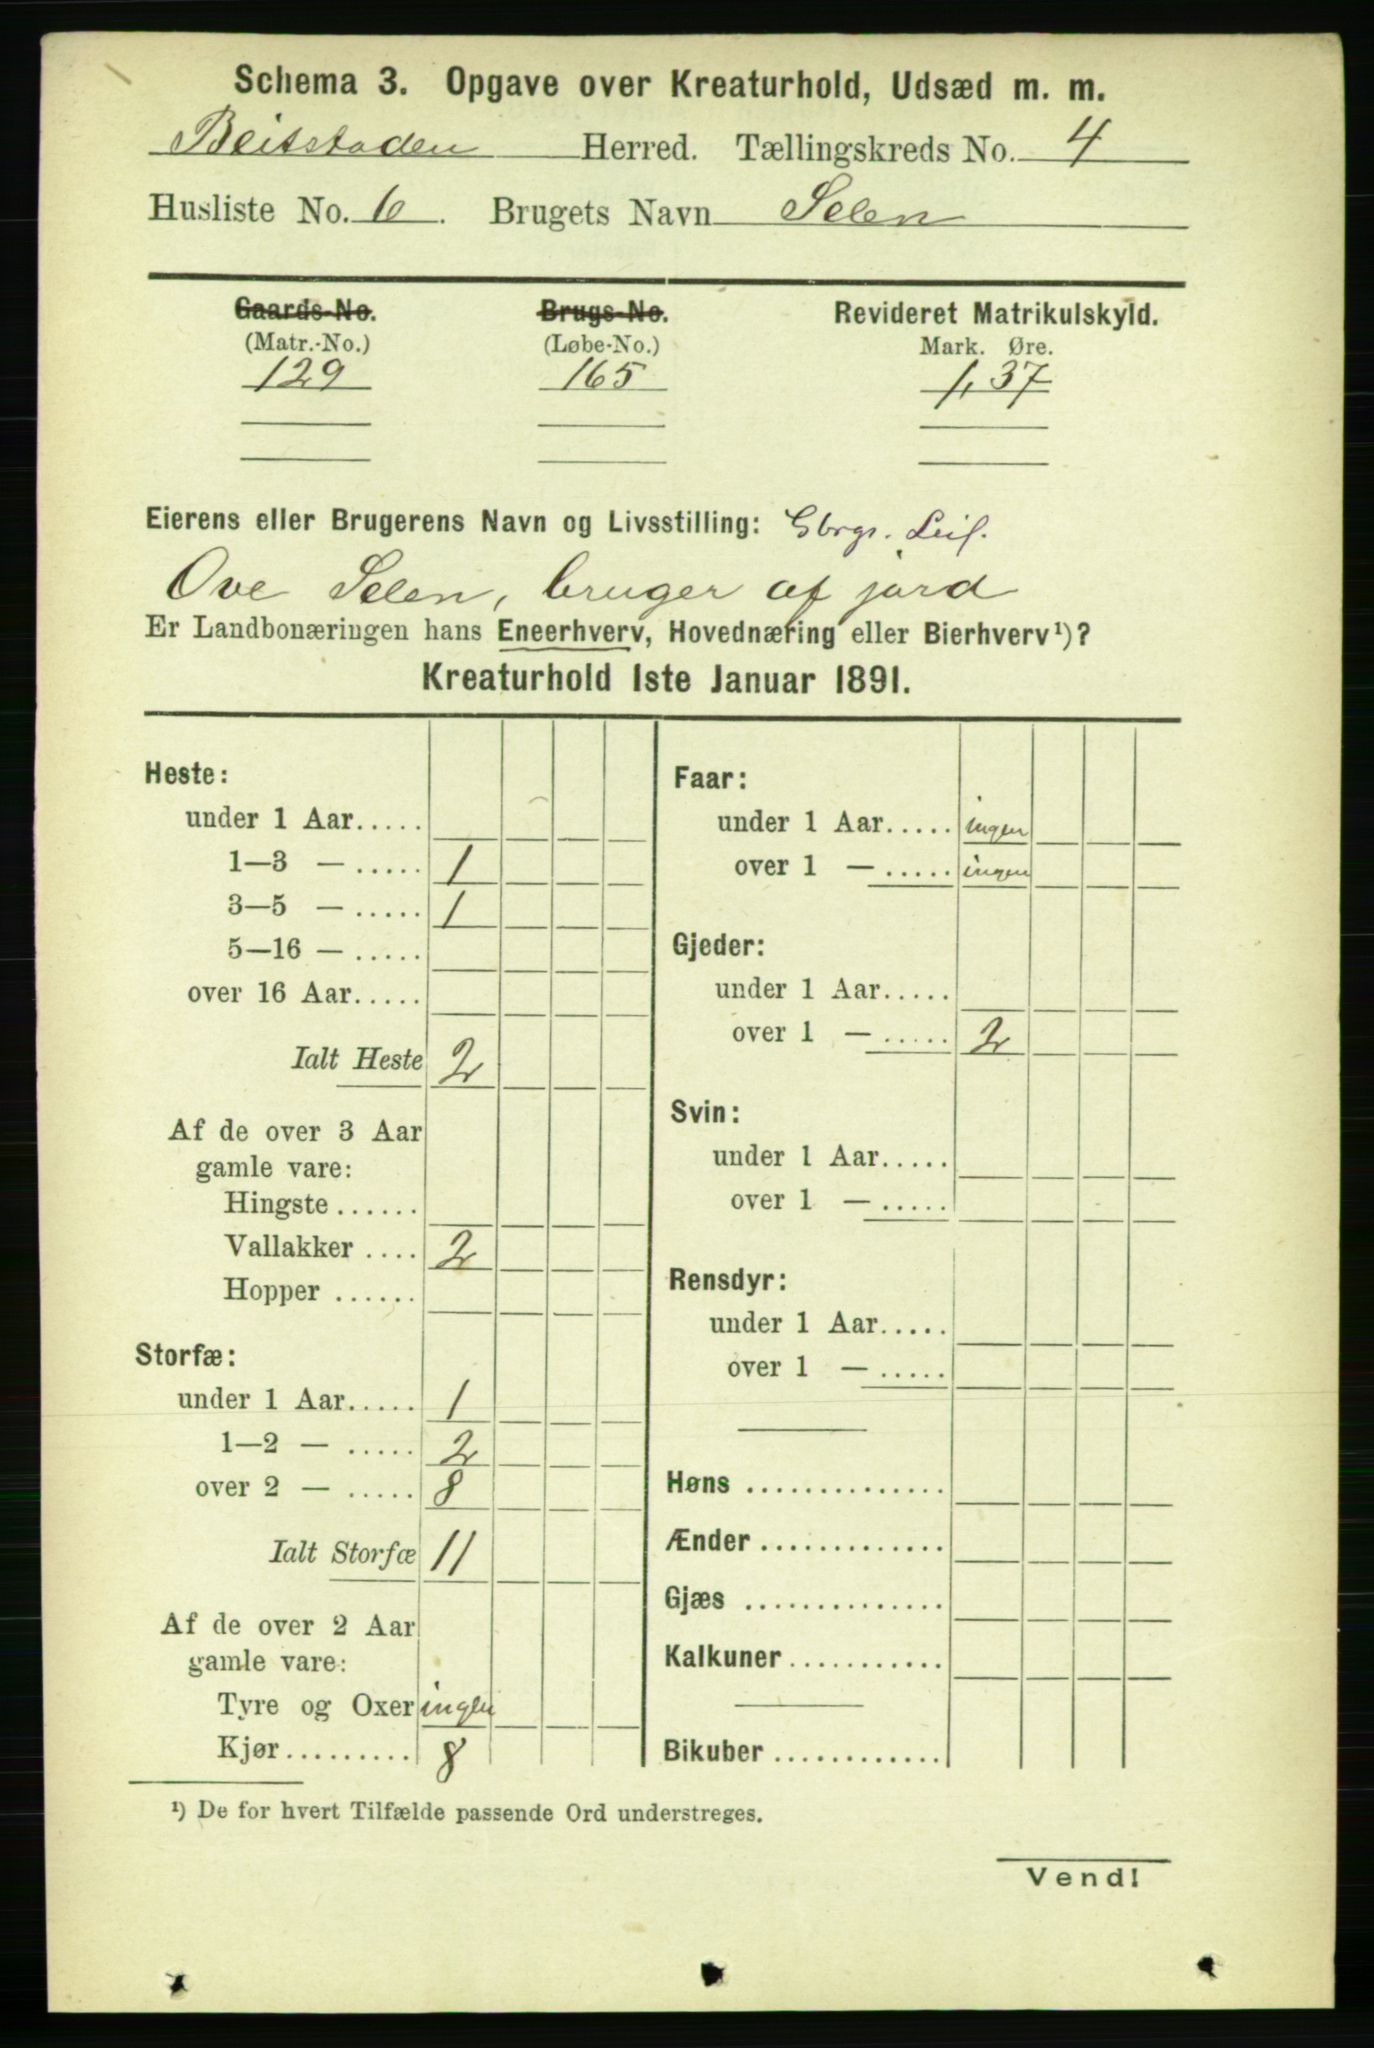 Schema 3. Opgave over Kreaturhold, Udsæd m. m.
Beitstaden Herred. Tællingskreds No. 4
Husliste No. 6. Brugets Navn Selen
Gaards-No. Brugs-No. Revideret Matrikulskyld.
(Matr.-No.) (Løbe-No.) Mark. Øre.
129 165 1,37
Eierens eller Brugerens Navn og Livsstilling: Gbrgr.
Ove Selen, bruger af jord
Er Landbonæringen hans Eneerhverv, Hovednæring eller Bierhverv¹)?
Kreaturhold 1ste Januar 1891.
Heste:
under 1 Aar.....
1—3 — ..... 1
3—5 — ..... 1
5—16 — .....
over 16 Aar.....
Ialt Heste 2
Af de over 3 Aar
gamle vare:
Hingste ......
Vallakker .... 2
Hopper ......
Storfæ:
under 1 Aar..... 1
1—2 — ..... 2
over 2 — ..... 8
Ialt Storfæ 11
Af de over 2 Aar
gamle vare:
Tyre og Oxer ingen
Kjør.......... 8
Faar:
under 1 Aar..... ingen
over 1 — ..... ingen
Gjeder:
under 1 Aar.....
over 1 — ..... 2
Svin:
under 1 Aar.....
over 1 — .....
Rensdyr:
under 1 Aar.....
over 1 — .....
Høns ..............
Ænder .............
Gjæs ..............
Kalkuner...........
Bikuber ............
¹) De for hvert Tilfælde passende Ord understreges.
Vend!